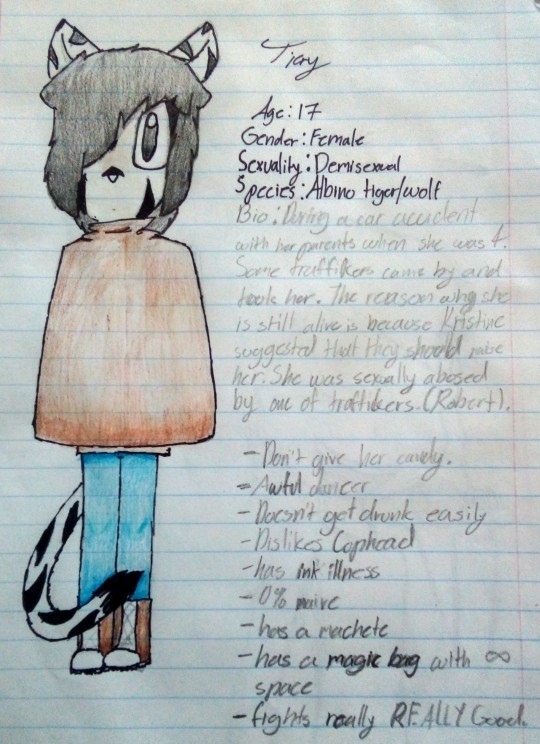 Ticry
Age: 17
Gender: Female
Sexuality: Demisexual
Species: Albino tiger/wolf
Bio: During a car accident
with her parents when she was 7.
Some traffikers came by and
took her. The reason why she
is still alive is because Kristine
suggested that they should raise
her. She was sexually abosed
by one of traffikers. (Robert).
- Don't give her candy.
- Awful dancer
- Doesn't get drunk easily
- Dislikes Cuphead
- has ink illness
- 0% naive
- has a machete
- has a magic bag with ∞
space
- fights really REALLY Good.